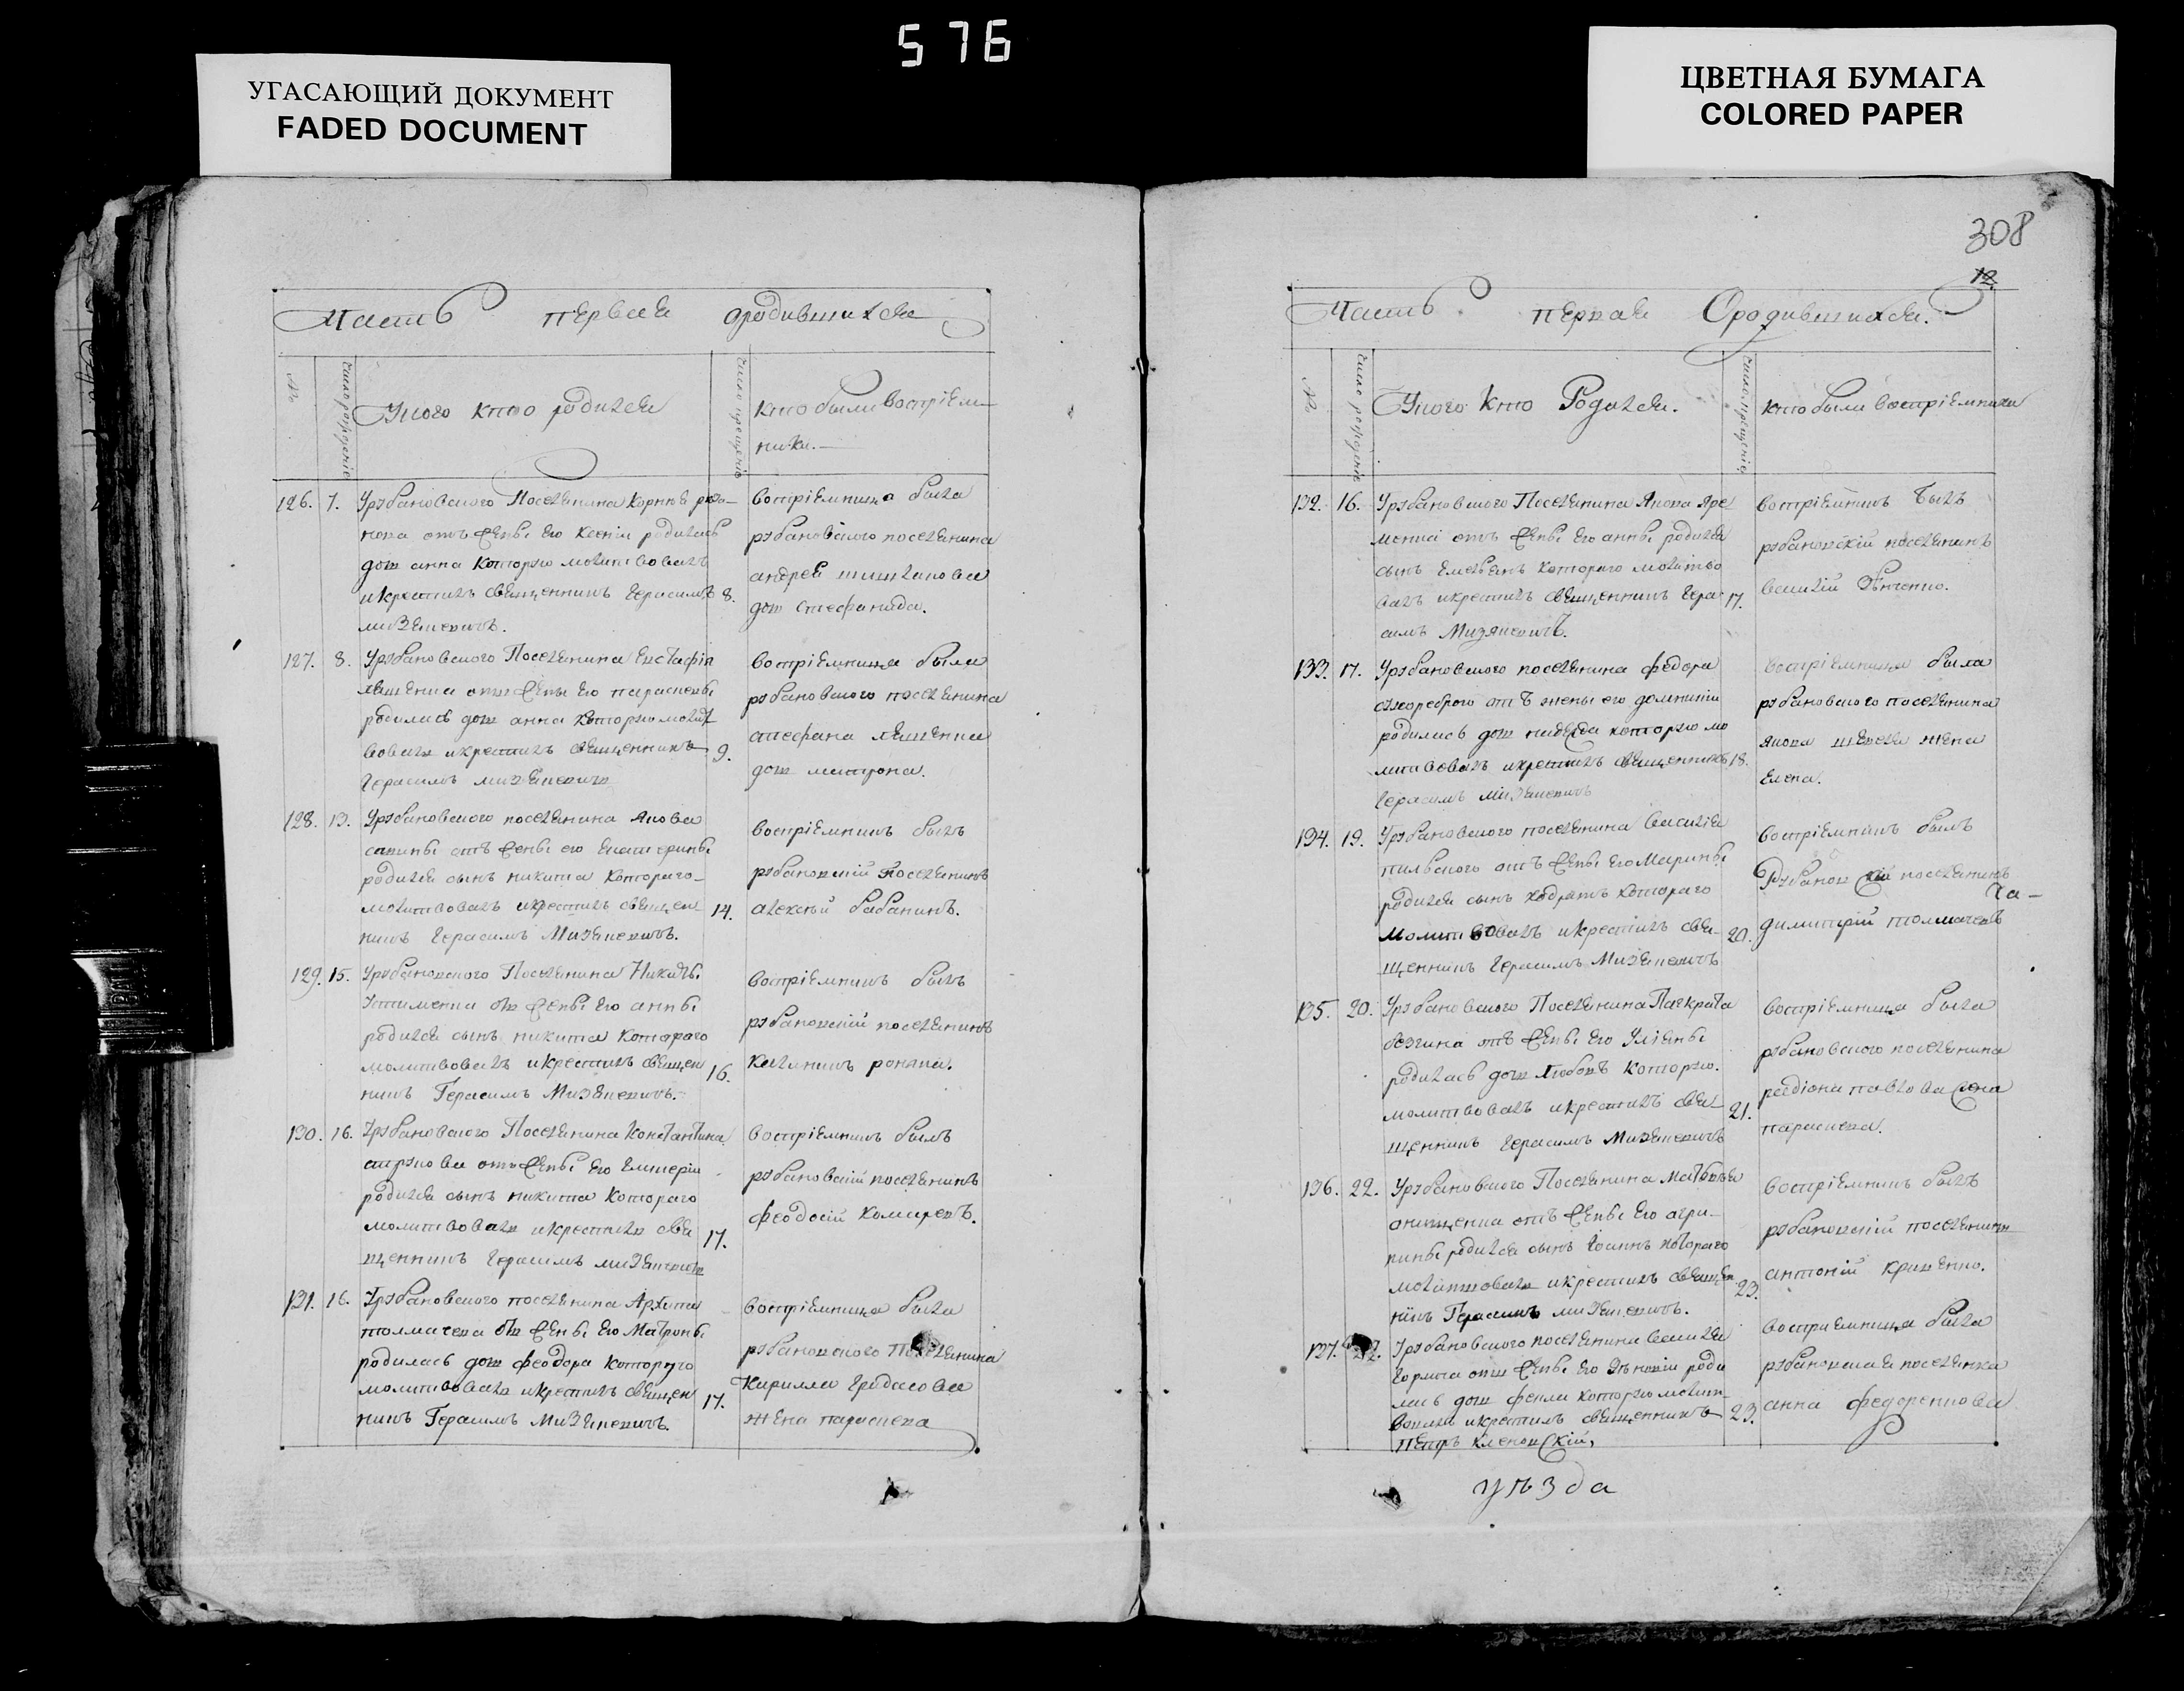 576
УГАСАЮЩИЙ ДОКУМЕНТ
FADED DOCUMENT
ЦВЕТНАЯ БУМАГА
COLORED PAPER
Часть первая ородившихся
№
число рождение
Уного кто родился
число крещение
кто были восприем-
ники.
126. 7. Урубановского Поселянина Корнѣя
от жены его Ксении родилась
дощ анна которую молитвовалъ
и крестилъ священникъ Герасимъ 8.
Мизякевичъ.
восприемница была
рубановского поселянина
андрея
дощ стефанида.
127. 8. Урубановского Поселянина Евстафія
лященка отъ жены его парасковы
родилась дощ анна которую молит
вовалъ и крестилъ священникъ 9.
Герасимъ мизякевичъ
восприемница была
рубановского поселянина
стефана лященка
дощ матрона.
128. 13. Урубановского поселянина Якова
отъ жены его Екатерины
родился сынъ никита котораго
молитвовалъ и крестилъ священ 14.
никъ Герасимъ Мизякевичъ.
восприемникъ былъ
рубановскій поселянинъ
алексѣй бабанинъ.
129. 15. Урубановского Поселянина Никиты
отъ жены его анны
родился сынъ никита котораго
молитвовалъ и крестилъ священ 16.
никъ Герасимъ Мизякевичъ.
восприемникъ былъ
рубановскій поселянинъ
130. 16. Урубановского Поселянина Константина
струкова отъ жены его
родился сынъ никита котораго
молитвовалъ и крестилъ свя 17.
щенникъ Герасимъ мизякевичъ
восприемникъ былъ
рубановскій поселянинъ
феодосій
131. 16. Урубановского поселянина Архипа
толмачева отъ жены его Матроны
родилась дощ феодора которую
молитвовалъ и крестилъ священ 17.
никъ Герасимъ Мизякевичъ.
восприемница была
рубановского Поселянина
Кирилла Гридасова
жена параскева
308
12.
Часть первая Ородившихся.
№
число рождение
Уного Кто Родился.
число крещение
кто были восприемники
132. 16. Урубановского Поселянина Якова Яре
менка отъ жены его анны родился
сынъ Емельянъ котораго молитво
валъ и крестилъ священникъ Гера 17.
симъ Мизякевичъ.
восприемникъ былъ
рубановскій поселянинъ
василій
133. 17. Урубановского поселянина федора
сухореброго отъ жены его домникии
родилась дощ которую мо
литвовалъ и крестилъ священникъ 18.
Герасимъ Мизякевичъ
восприемница была
рубановского поселянина
якова жена
Елена.
134. 19. Урубановского поселянина Василія
отъ жены его Марины
родился сынъ кодратъ котораго
молитвовалъ и крестилъ свя- 20.
щенникъ Герасимъ Мизякевичъ
восприемникъ былъ
Рубановскій поселянинъ
димитрій толмачевъ
135. 20. Урубановского Поселянина Панкрата
отъ жены его Уліяны
родилась дощ любовъ которую.
молитвовалъ и крестилъ свя- 21.
щенникъ Герасимъ Мизякевичъ
восприемница была
рубановского поселянина
радіона павлова жена
параскева.
136. 22. Урубановского Поселянина Матвѣя
онищенка отъ жены его агри-
пины родился сынъ Іоаннъ котораго
молитвовалъ и крестилъ священ 23.
никъ Герасимъ мизякевичъ.
восприемникъ былъ
рубановскій поселянинъ
антоній
137. 22. Урубановского поселянина василия
отъ жены его роди
лась дощ фекла которую молит-
вовалъ и крестилъ священникъ 23.
Петръ кленовскій,
восприемница была
рубановская поселянка
анна федоренкова
уѣзда